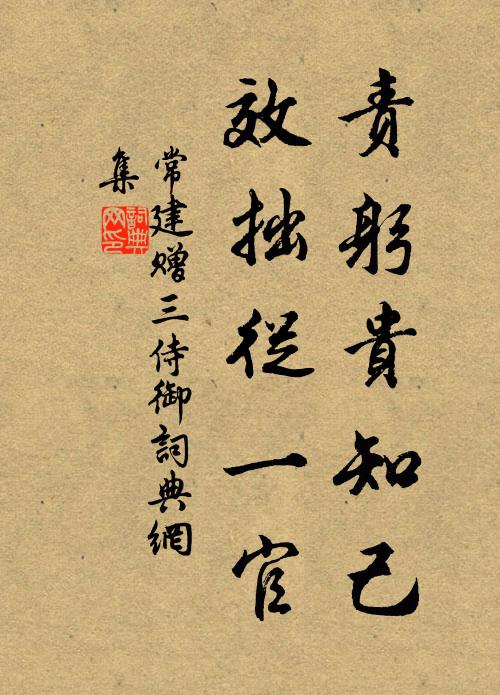 責躬貴知己
效拙從一官
常建贈三侍御詞典網
集
詞典
网印